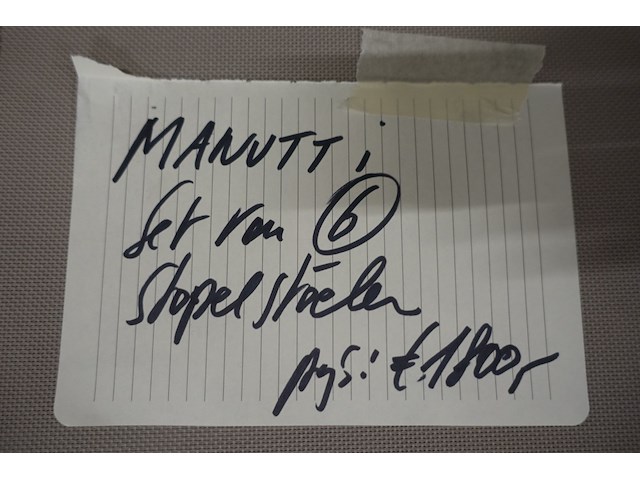 MANUTTi
Set van 6
stapelstoelen
prijs: €.1800,-